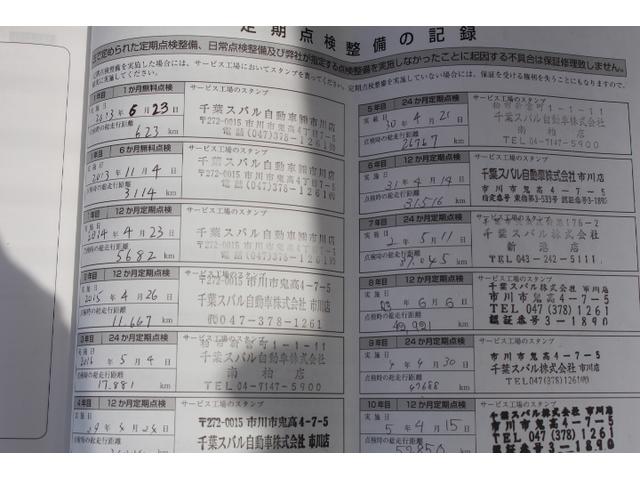 定期点検整備の記録
で定められた定期点検整備、日常点検整備及び弊社が指定する点検整備を実施しなかったことに起因する不具合は保証修理致しません。
定期点検整備を実施した場合には、サービス工場においてスタンプを
定期点検整備を実施していない場合には、保証を受ける権利を失うことになりますので、
1年目 1か月無料点検 サービス工場のスタンプ
2013 6 23
点検時の総走行距離
623 km
千葉スバル自動車㈱市川店
〒272-0015 市川市鬼高4丁目7-5
電話(047)378-1261
年目 6か月無料点検 サービス工場のスタンプ
2013 11 4
点検時の総走行距離
3114 km
千葉スバル自動車㈱市川店
〒272-0015 市川市鬼高4丁目7-5
電話(047)378-1261
1年目 12か月定期点検 サービス工場のスタンプ
2014 4 23
点検時の総走行距離
5682 km
〒272-0015 市川市鬼高4-7-5
千葉スバル自動車株式会社 市川店
2年目 12か月定期点検 サービス工場のスタンプ
2015 4 26
の総走行距離
11,667 km
〒272-0015 市川市鬼高4-7-5
千葉スバル自動車株式会社 市川店
047-378-1261
3年目 24か月定期点検 サービス工場のスタンプ
2016 5 4
点検時の総走行距離
17,881 km
千葉スバル自動車株式会社
南柏店
TEL 04-7147-5900
4年目 12か月定期点検 サービス工場のスタンプ
実施日
〒272-0015 市川市鬼高4-7-5
千葉スバル自動車株式会社 市川店
5年目 24か月定期点検 サービス工場のスタンプ
実施日 30 4 21
点検時の総走行距離
26767 km
1-1-11
千葉スバル自動車株式会社
南柏店
TEL 04-7147-5900
6年目 12か月定期点検 サービス工場のスタンプ
実施日 31 4 14
点検時の総走行距離
31,516 km
千葉スバル自動車株式会社 市川店
市川市鬼高4-7-5
7年目 24か月定期点検 サービス工場のスタンプ
実施日 2 5 11
点検時の総走行距離
km
千葉スバル株式会社
新港店
TEL 043-242-5111
8年目 12か月定期点検 サービス工場のスタンプ
実施日 6 6
点検時の総走行距離
km
千葉スバル株式会社 市川店
市川市鬼高4-7-5
TEL047(378)1261
認証番号3-1890
9年目 24か月定期点検 サービス工場のスタンプ
実施日 4 4 30
点検時の総走行距離
km
千葉スバル株式会社 市川店
市川市鬼高4-7-5
TEL047(378)1261㈹
10年目 12か月定期点検 サービス工場のスタンプ
実施日 5 4 15
点検時の総走行距離
km
千葉スバル株式会社 市川店
市川市鬼高4-7-5
TEL047(378)1261
認証番号3-1890